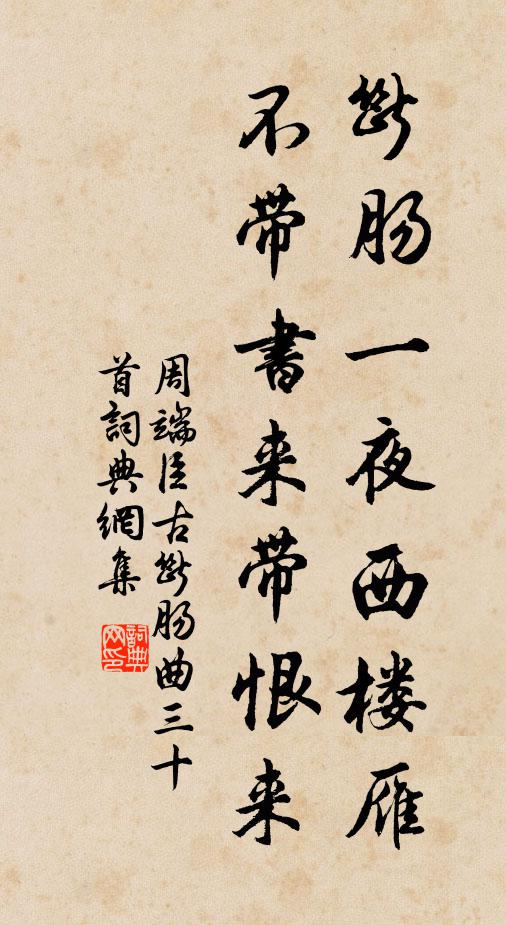 断肠一夜西楼雁
不带書来带恨来
周端臣古断肠曲三十
首詞典網集
詞典
网印